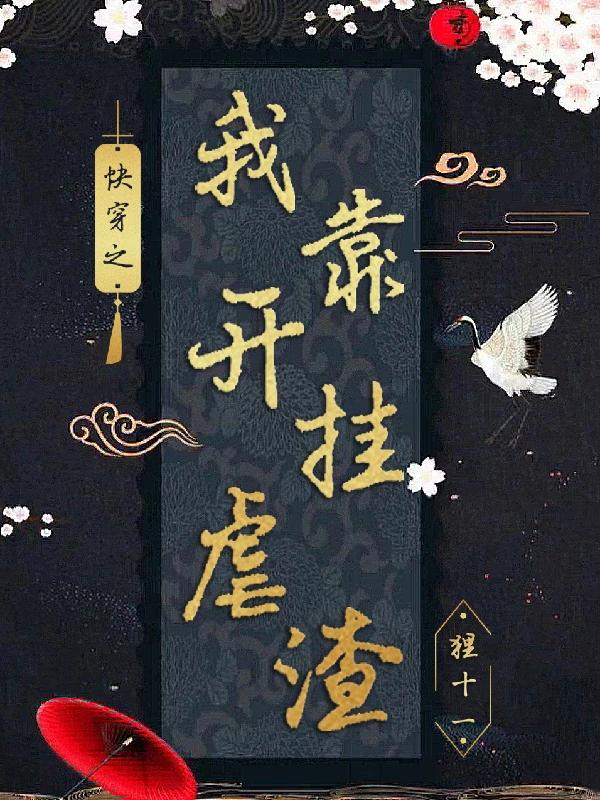 快穿之
我靠开挂虐渣
狸十一